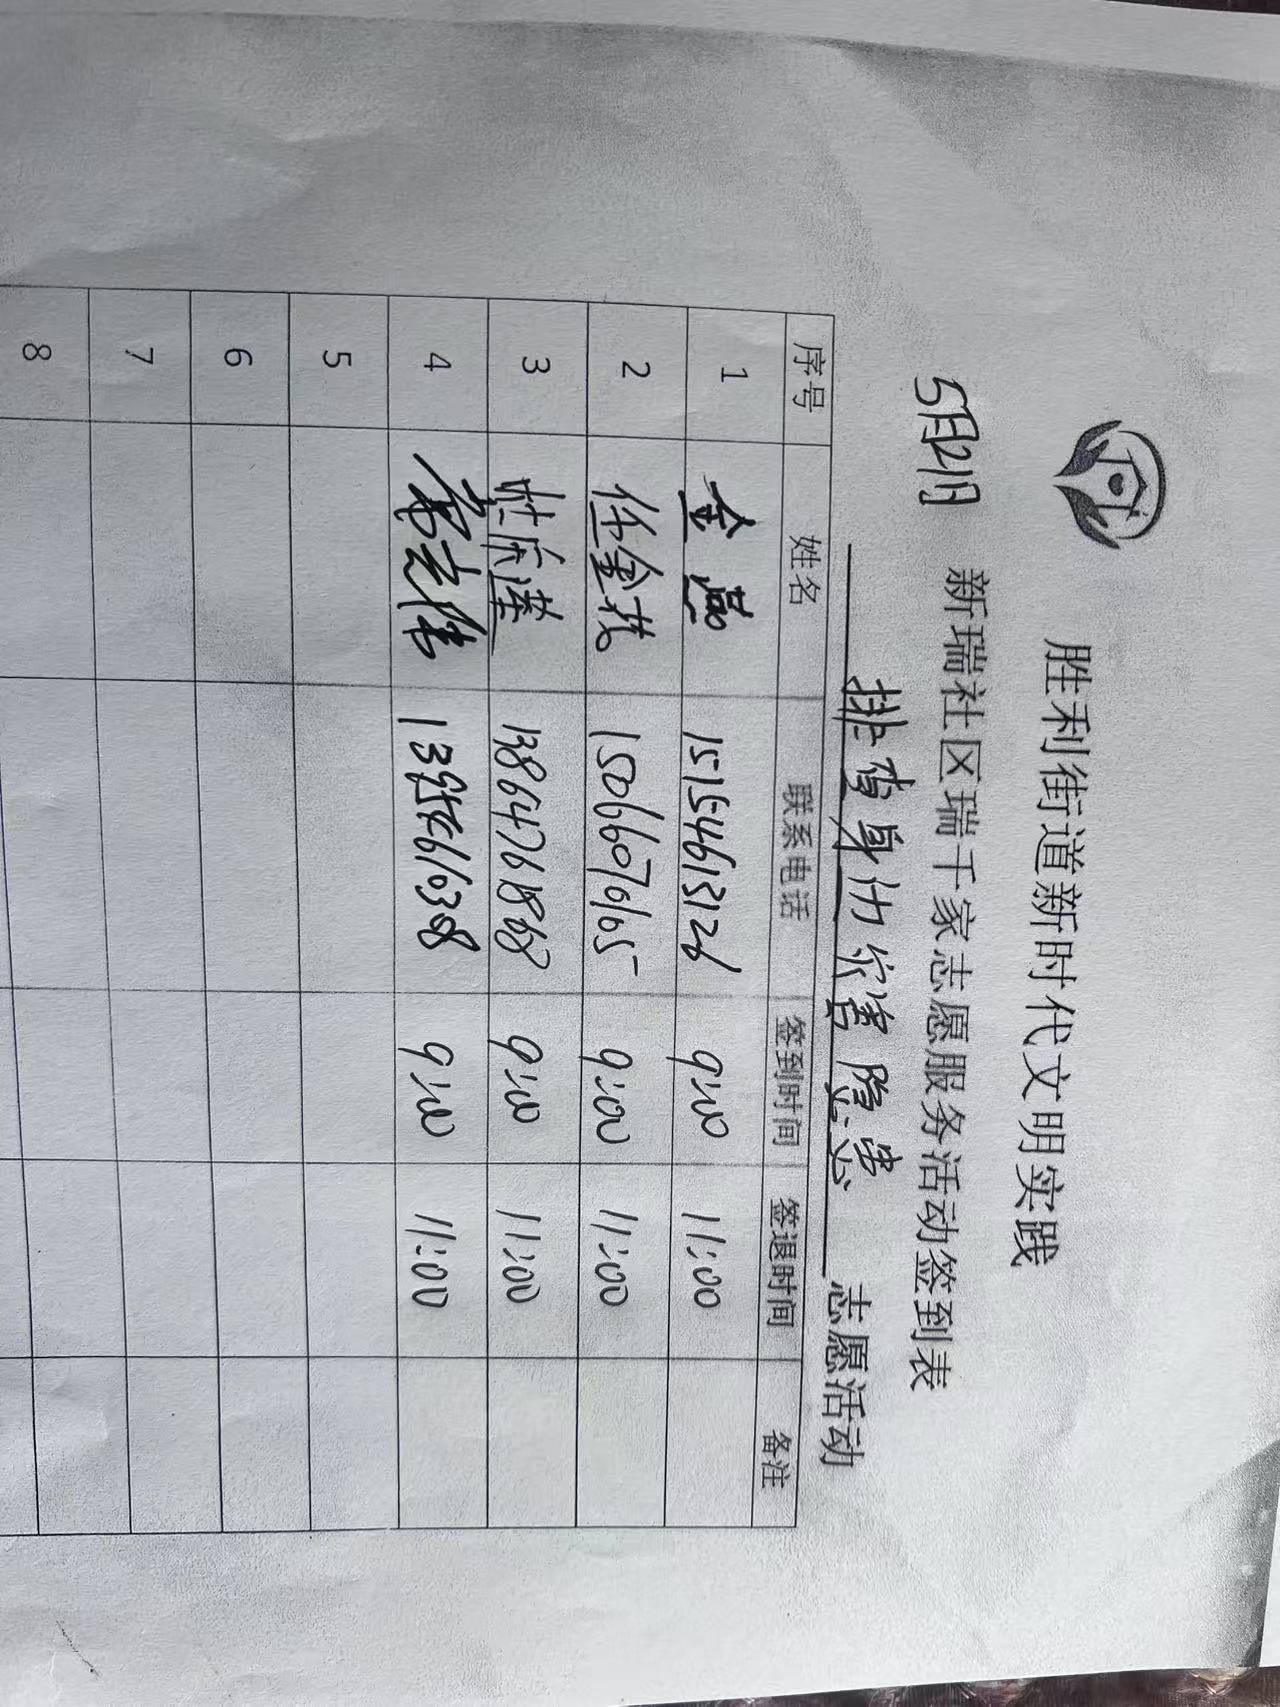 胜利街道新时代文明实践
5月21日 新瑞社区瑞千家志愿服务活动签到表
排查身边灾害隐患 志愿活动
序号 姓名 联系电话 签到时间 签退时间 备注
1 金燕 15154613126 9:00 11:00
2 任金枝 15066076165 9:00 11:00
3 杜乐漾 13864761868 9:00 11:00
4 9:00 11:00
5
6
7
8